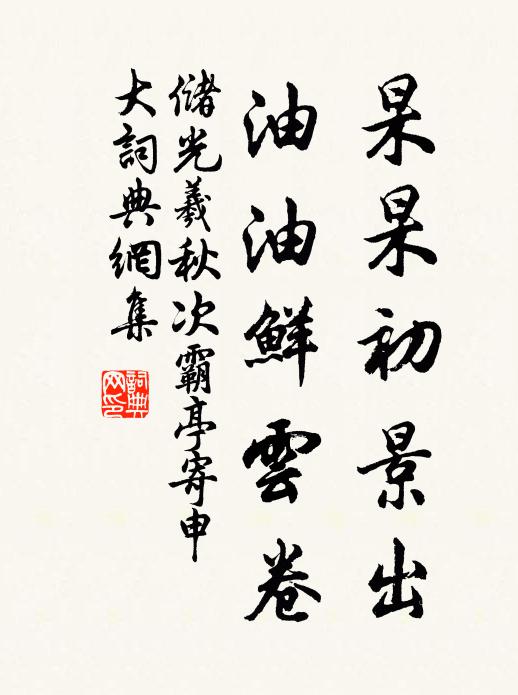 杲杲初景出
油油鮮雲卷
儲光羲秋次霸亭寄申
大詞典網集
詞典网印